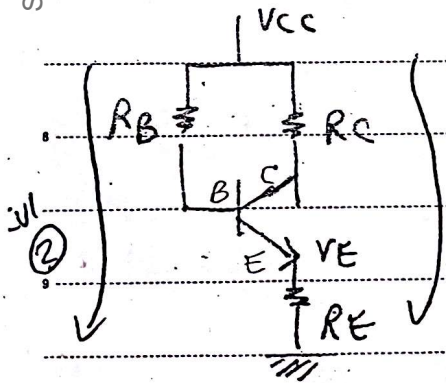 VCC
RB
RC
8
B
C
②
E
VE
9
RE